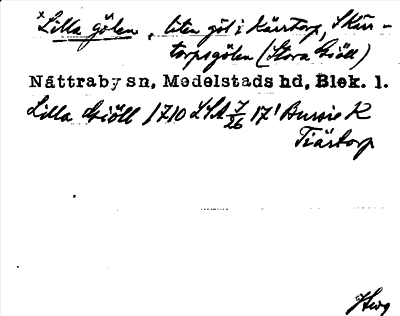 x Lilla gölen, liten göl i Kärrtorp, Skärr-
torpsgölen (Stora Giöll)
Nättraby sn, Medelstads hd, Blek. l.
Lilla Giöll 1710 LSA 7/26 17¹ Bussie K
Tiärtorp